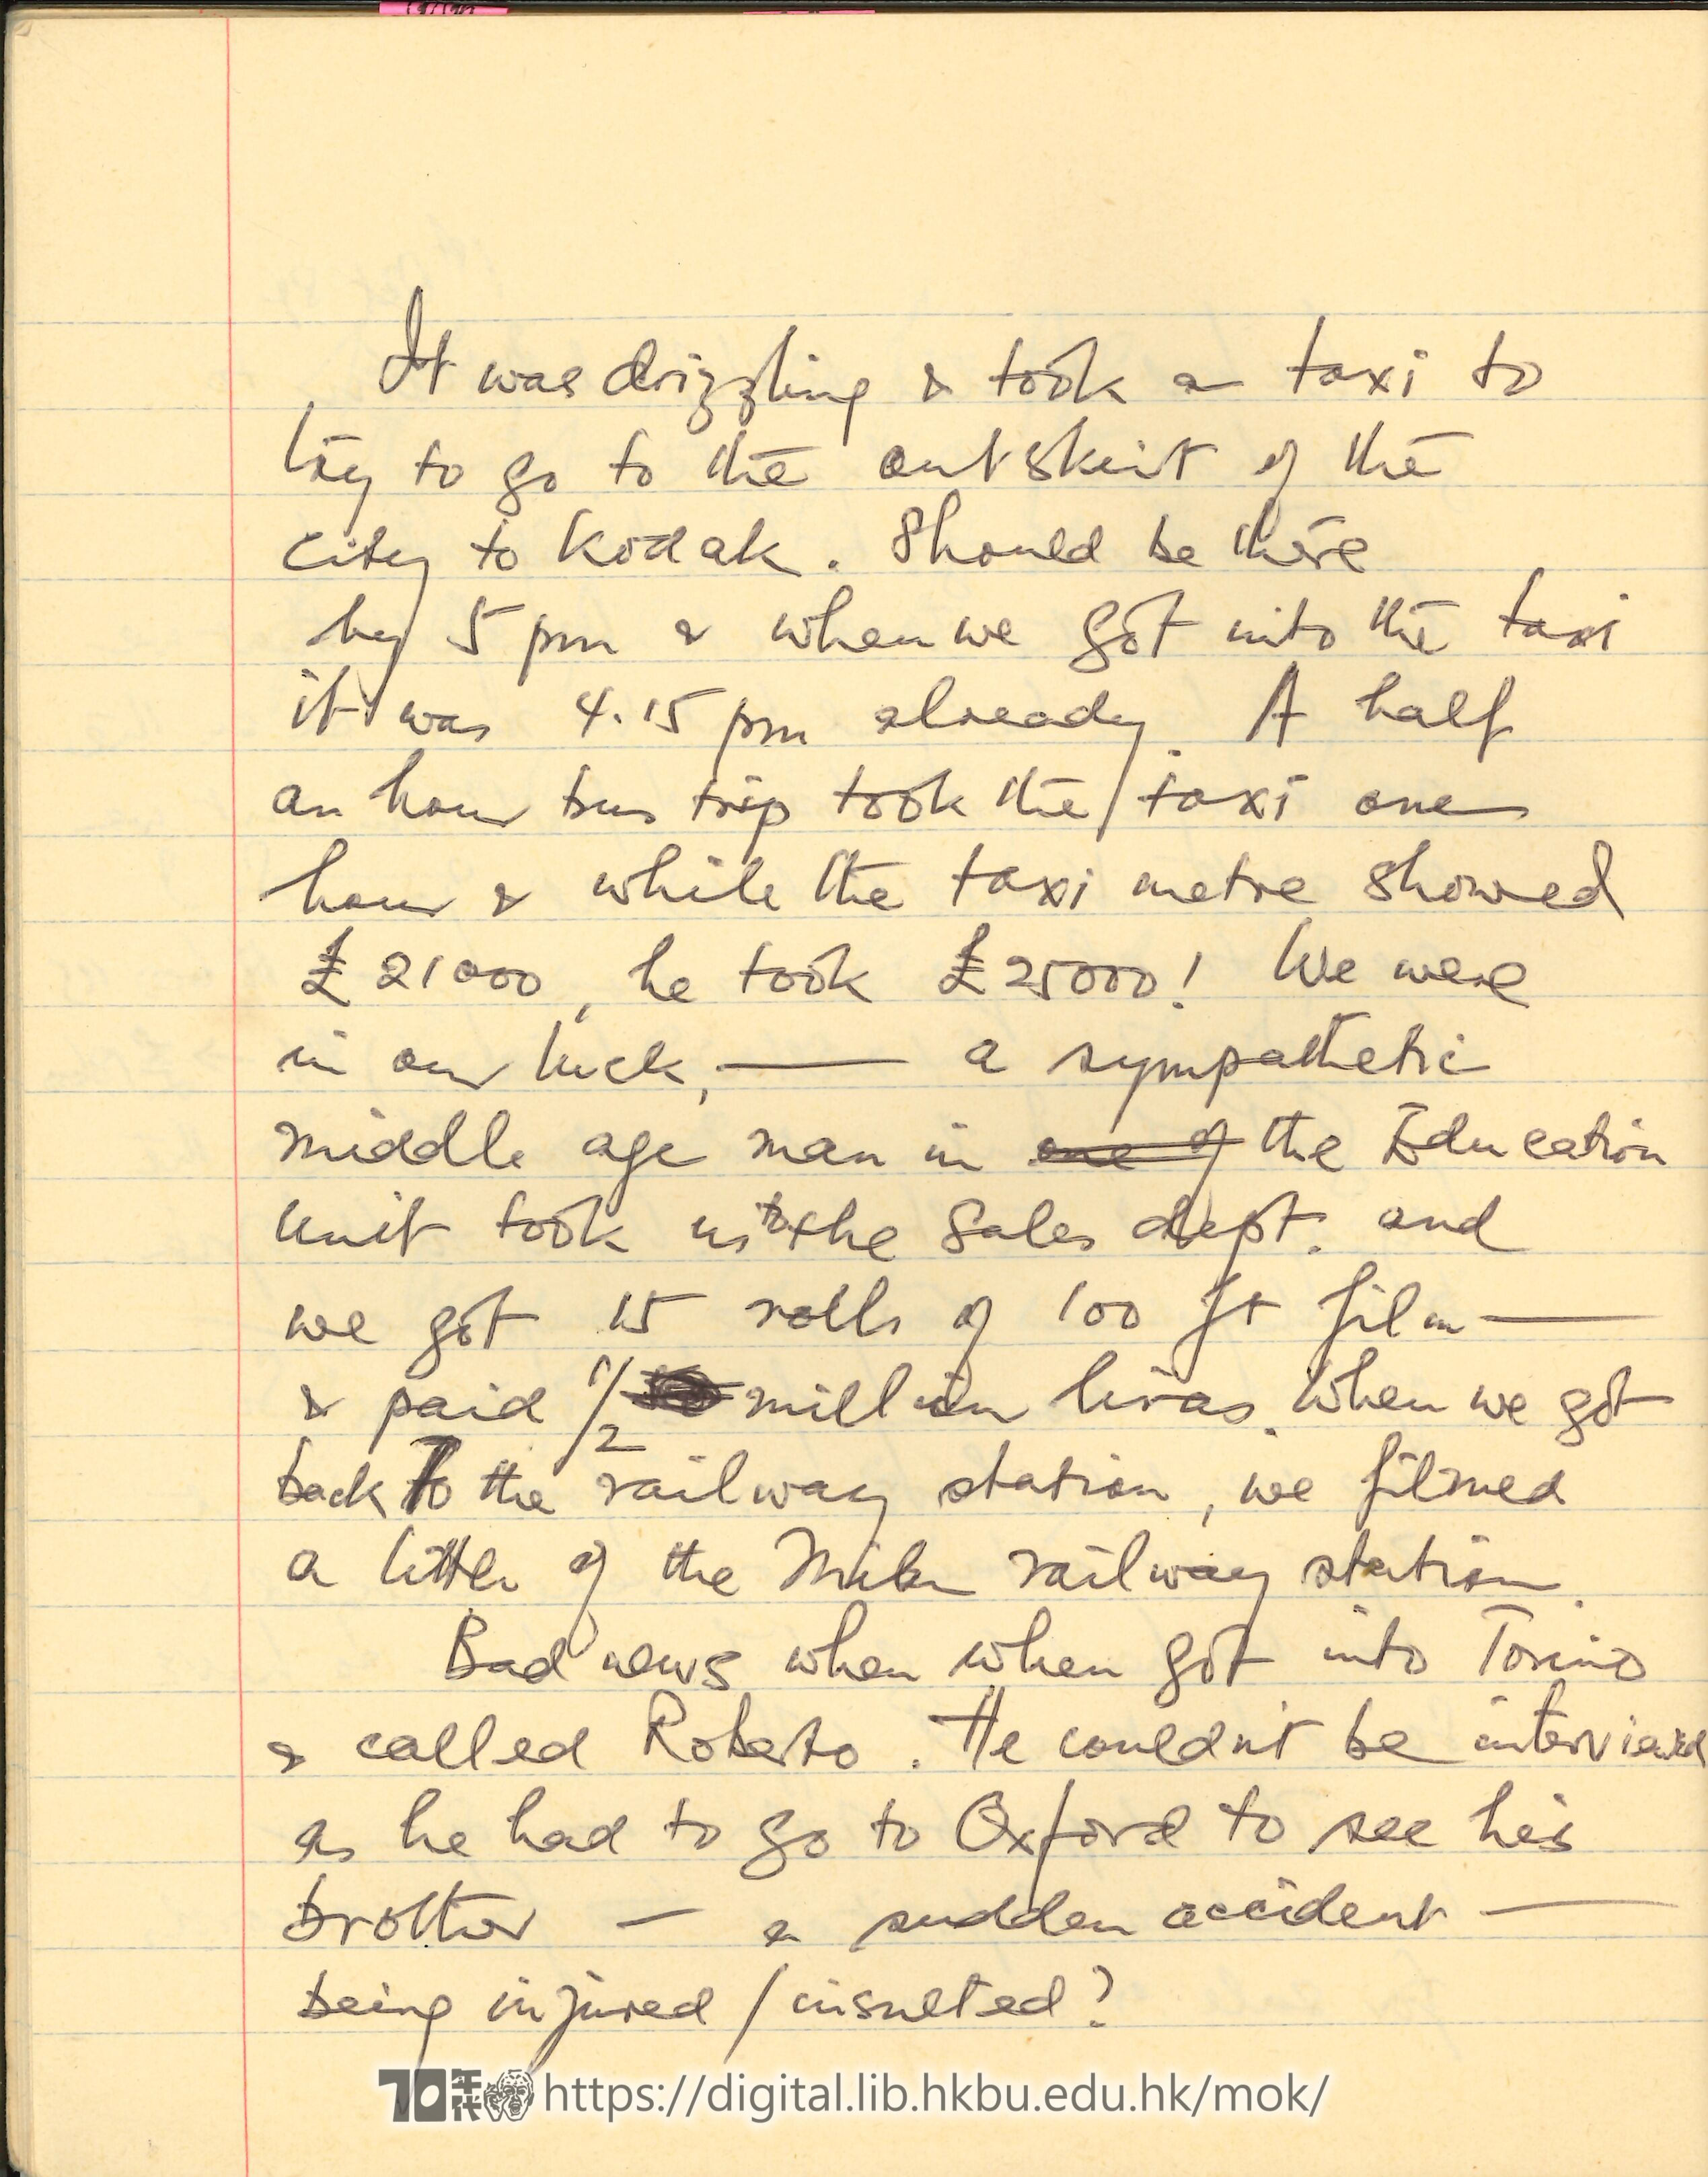 It was drizzling & took a taxi to
try to go to the outskirt of the
city to Kodak. Should be there
by 5 pm & when we got into the taxi
it was 4.15 pm already. A half
an hour bus trip took the taxi one
hour & while the taxi metre showed
£ 21000, he took £ 25000! We were
in our luck, — a sympathetic
middle age man in one of the Education
Unit took us to the Sales dept. and
we got 15 rolls of 100 ft film —
& paid 1/2 million liras. When we got
back to the railway station, we filmed
a little of the Milan railway station.
Bad news when when got into Torino
& called Roberto. He couldn't be interviewed
as he had to go to Oxford to see his
brother — a sudden accident —
being injured / insulted?
70年代 https://digital.lib.hkbu.edu.hk/mok/